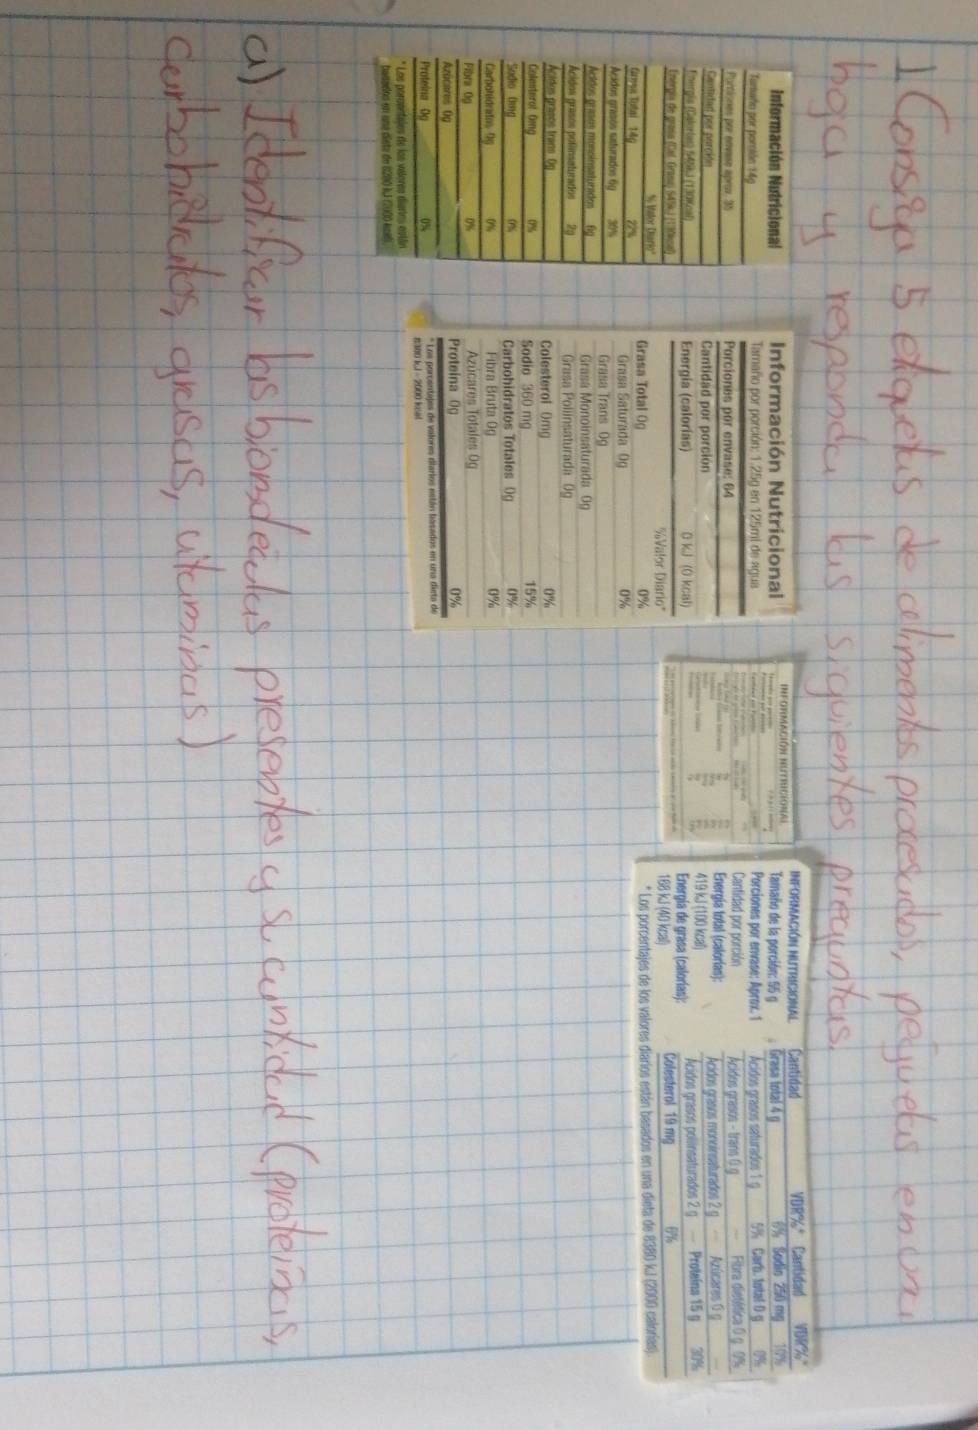 1 Consiga 5 etiquetas de alimentos procesados, peguelas en una
hoja y responda las siguientes preguntas.
Información Nutricional
Tamaño por porción 14g
Porciones por envase aprox. 35
Cantidad por porción
Energía (Calorías) 549kJ (130Kcal)
Energía de grasa (Cal. Grasa) 549kJ (130kcal)
% Valor Diario*
Grasa Total 14g 22%
Ácidos grasos saturados 6g 30%
Ácidos grasos monoinsaturados 6g
Ácidos grasos poliinsaturados 2g
Ácidos grasos trans 0g
Colesterol 0mg 0%
Sodio 0mg 0%
Carbohidratos 0g 0%
Fibra 0g 0%
Azúcares 0g
Proteína 0g 0%
*Los porcentajes de los valores diarios están
basados en una dieta de 8380 kJ (2000 kcal).
Información Nutricional
Tamaño por porción: 1.25g en 125ml de agua
Porciones por envase: 64
Cantidad por porción
Energía (calorías) 0 kJ (0 kcal)
%Valor Diario*
Grasa Total 0g 0%
Grasa Saturada 0g 0%
Grasa Trans 0g
Grasa Monoinsaturada 0g
Grasa Poliinsaturada 0g
Colesterol 0mg 0%
Sodio 360 mg 15%
Carbohidratos Totales 0g 0%
Fibra Bruta 0g 0%
Azúcares Totales 0g
Proteína 0g 0%
*Los porcentajes de valores diarios están basados en una dieta de
8380 kJ - 2000 kcal
INFORMACIÓN NUTRICIONAL
INFORMACIÓN NUTRICIONAL Cantidad VDR%* Cantidad VDR%*
Tamaño de la porción: 55 g Grasa total 4 g 6% Sodio 250 mg 10%
Porciones por envase: Aprox. 1 Ácidos grasos saturados 1 g 5% Carb. total 0 g 0%
Cantidad por porción Ácidos grasos - trans 0 g -- Fibra dietética 0 g 0%
Energía total (calorías): Ácidos grasos monoinsaturados 2 g -- Azúcares 0 g --
419 kJ (100 kcal) Ácidos grasos poliinsaturados 2 g -- Proteína 15 g 30%
Energía de grasa (calorías): Colesterol 19 mg 6%
168 kJ (40 kcal)
* Los porcentajes de los valores diarios están basados en una dieta de 8380 kJ (2000 calorías).
a) Identificar las biomoléculas presentes y su cantidad (proteínas,
carbohidratos, grasas, vitaminas)